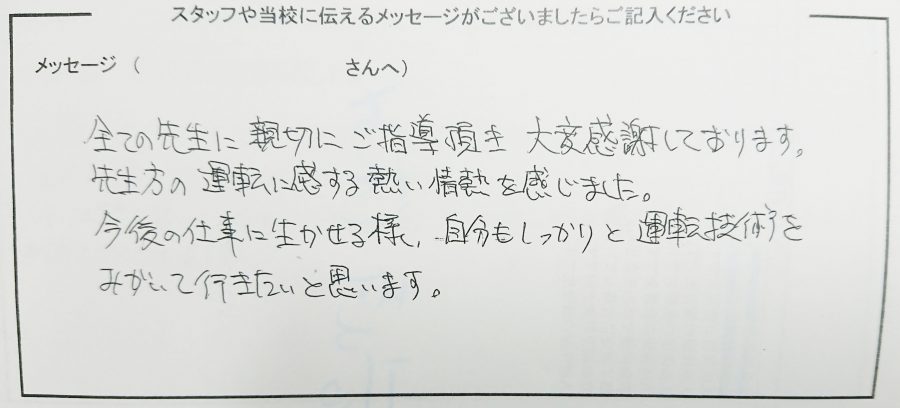 スタッフや当校に伝えるメッセージがございましたらご記入ください
メッセージ（　　　　　　　　さんへ）
全ての先生に親切にご指導頂き 大変感謝しております。
先生方の運転に感する熱い情熱を感じました。
今後の仕事に生かせる様、自分もしっかりと運転技術を
みがいて行きたいと思います。